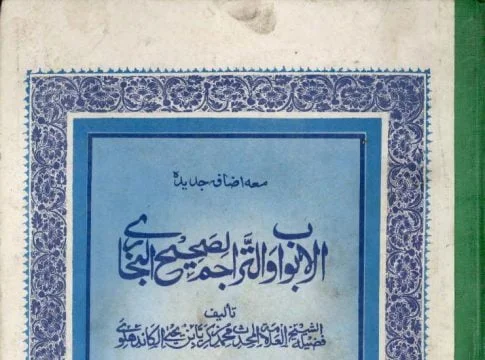 معه اضافه جدیده
الابواب والتراجم لصحیح البخاری
تألیف
فضیلة الشیخ العلامة المحدث محمد زکریا بن یحیی الکاندهلوی